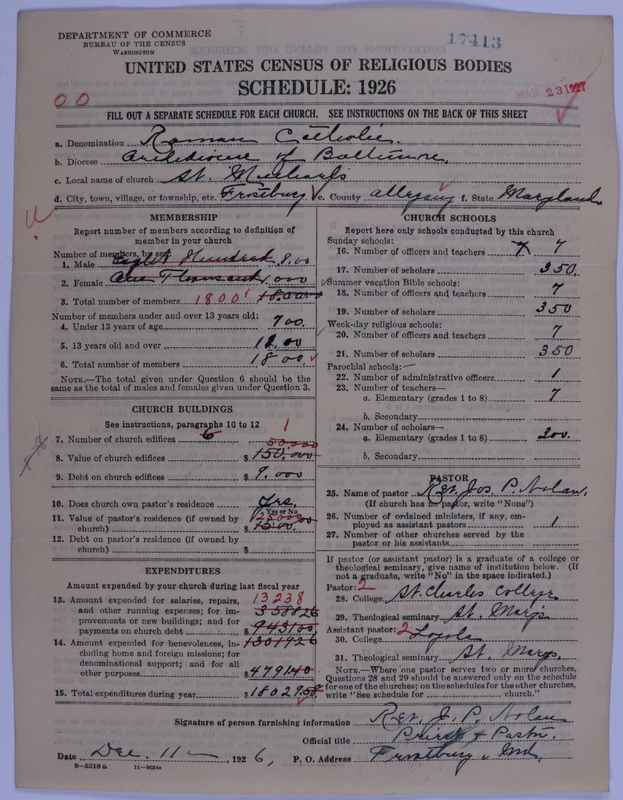 DEPARTMENT OF COMMERCE
BUREAU OF THE CENSUS
WASHINGTON
17413
UNITED STATES CENSUS OF RELIGIOUS BODIES
SCHEDULE: 1926
MAR 23 1927
00
FILL OUT A SEPARATE SCHEDULE FOR EACH CHURCH. SEE INSTRUCTIONS ON THE BACK OF THIS SHEET
a. Denomination Roman Catholic
b. Diocese Archdiocese of Baltimore
c. Local name of church St. Michael's
d. City, town, village, or township, etc. Frostburg e. County Allegany f. State Maryland
MEMBERSHIP
Report number of members according to definition of member in your church
Number of members, by sex:
1. Male Eight Hundred 800
2. Female One Thousand 1,000
3. Total number of members 1800
Number of members under and over 13 years old:
4. Under 13 years of age 700.
5. 13 years old and over
6. Total number of members 1800.
NOTE.—The total given under Question 6 should be the same as the total of males and females given under Question 3.
CHURCH BUILDINGS
See instructions, paragraphs 10 to 12
7. Number of church edifices 6 1
50000
8. Value of church edifices $ 150,000
9. Debt on church edifices $ 9,000
10. Does church own pastor's residence Yes.
Yes or No
11. Value of pastor's residence (if owned by church) $
12. Debt on pastor's residence (if owned by church) $
EXPENDITURES
Amount expended by your church during last fiscal year
13. Amount expended for salaries, repairs, and other running expenses; for improvements or new buildings; and for payments on church debt 13238 358826 $ 943100
14. Amount expended for benevolences, including home and foreign missions; for denominational support; and for all other purposes 1301926 $ 479140
15. Total expenditures during year $ 18029
CHURCH SCHOOLS
Report here only schools conducted by this church
Sunday schools:
16. Number of officers and teachers 7 7
17. Number of scholars 350.
Summer vacation Bible schools:
18. Number of officers and teachers 7
19. Number of scholars 350
Week-day religious schools:
20. Number of officers and teachers 7
21. Number of scholars 350
Parochial schools:—
22. Number of administrative officers 1
23. Number of teachers—
a. Elementary (grades 1 to 8) 7
b. Secondary
24. Number of scholars—
a. Elementary (grades 1 to 8) 200.
b. Secondary
PASTOR
25. Name of pastor Rev. Jos. P. Nolan.
(If church has no pastor, write "None")
26. Number of ordained ministers, if any, employed as assistant pastors 1
27. Number of other churches served by the pastor or his assistants
If pastor (or assistant pastor) is a graduate of a college or theological seminary, give name of institution below. (If not a graduate, write "No" in the space indicated.)
Pastor: 2
28. College St. Charles College
29. Theological seminary St. Marys.
Assistant pastor: 2
30. College Loyola
31. Theological seminary St. Marys.
NOTE.—Where one pastor serves two or more churches, Questions 28 and 29 should be answered only on the schedule for one of the churches; on the schedules for the other churches, write "See schedule for church."
Signature of person furnishing information Rev. J. P. Nolan
Official title Priest & Pastor.
Date Dec. 11 1926, P. O. Address Frostburg, Md.
8—5518a 11—9054a